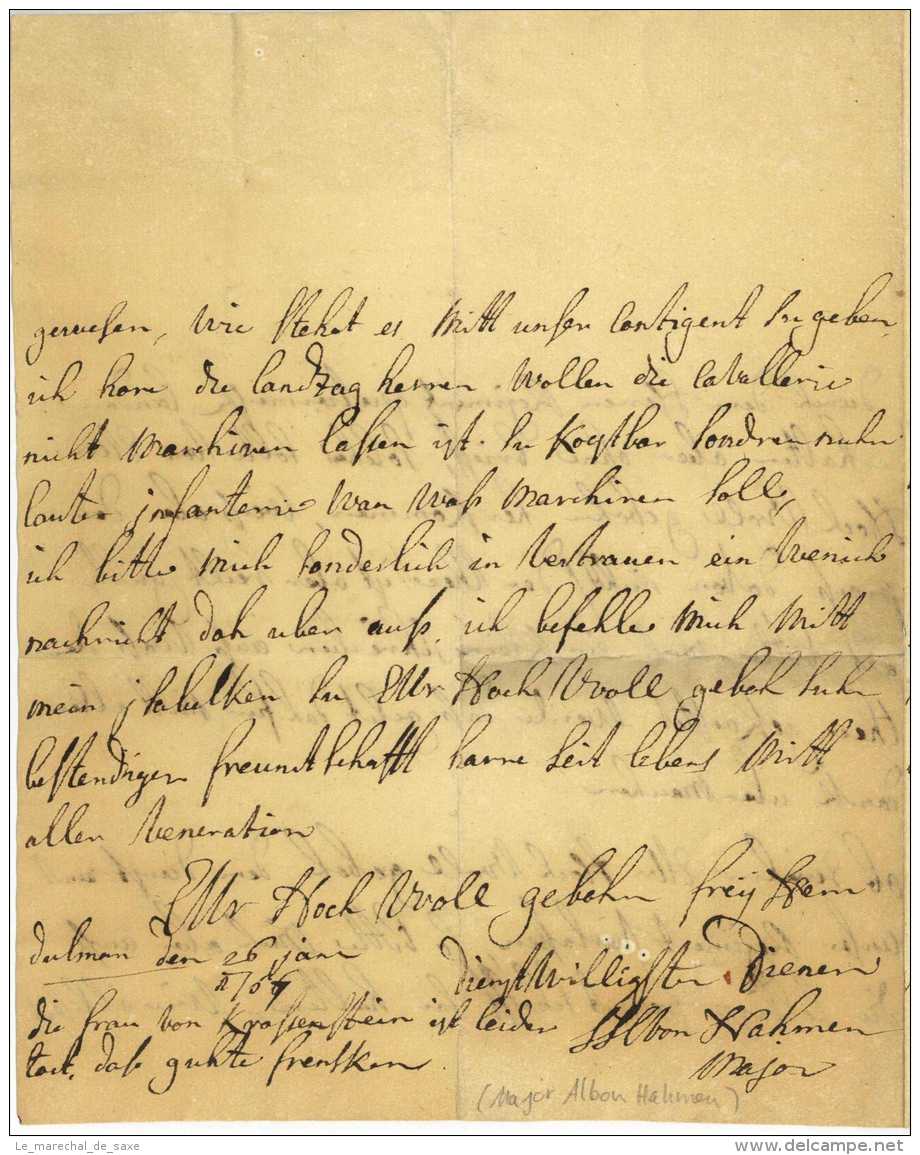 gewesen, wie stehet es mitt unser Contigent zu geben,
ich hore die landtag herren wollen die Cavallerie
nicht marchiren lassen ist zu kostbar sondren nuhn
lauter infanterie wan waß marchiren solle,
ich bitte mich sonderlich in Vertrauen ein wenich
nachricht dah uber auß, ich befehle mich mitt
mein isabelken zu EWr Hoch Woll geboh
bestendigen freuntschafft harre seit lebens mitt
aller Veneration
EWr Hoch Woll gebohrn freÿ Herrn
dulmen den 26 jan
dienstwilligster Dienern
die frau von Krassenstein ist leider
von Hahmen
tot, daß guhte frensken
Major
(Major Albon Hahmen)
Le_marechal_de_saxe
delcampe.net